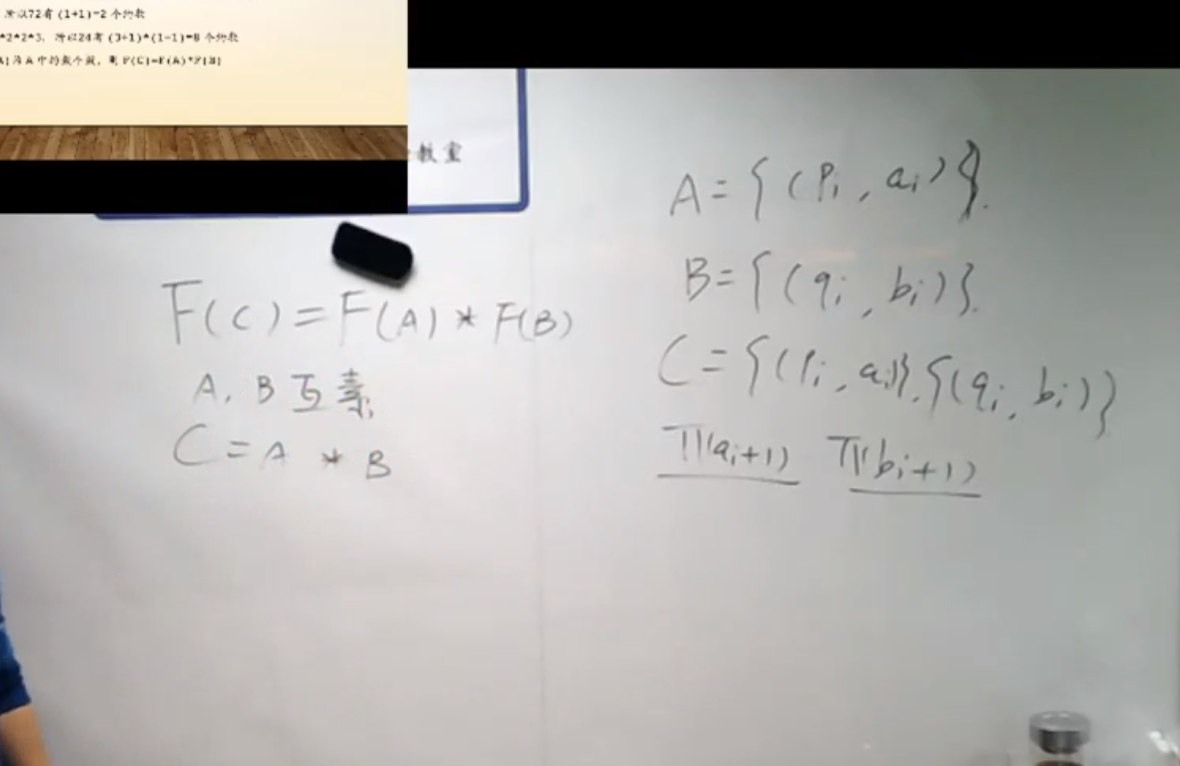 所以72有 (1+1)=2 个约数
*2*2*3, 所以24有 (3+1)*(1-1)=8 个约数
A)为A中约数个数, 则 F(C)=F(A)*F(B)
教室
F(C)=F(A)*F(B)
A, B 互素
C=A*B
A={(Pi, ai)}.
B={(qi, bi)}.
C={(Pi, ai)}.{(qi, bi)}
Π(ai+1) Π(bi+1)